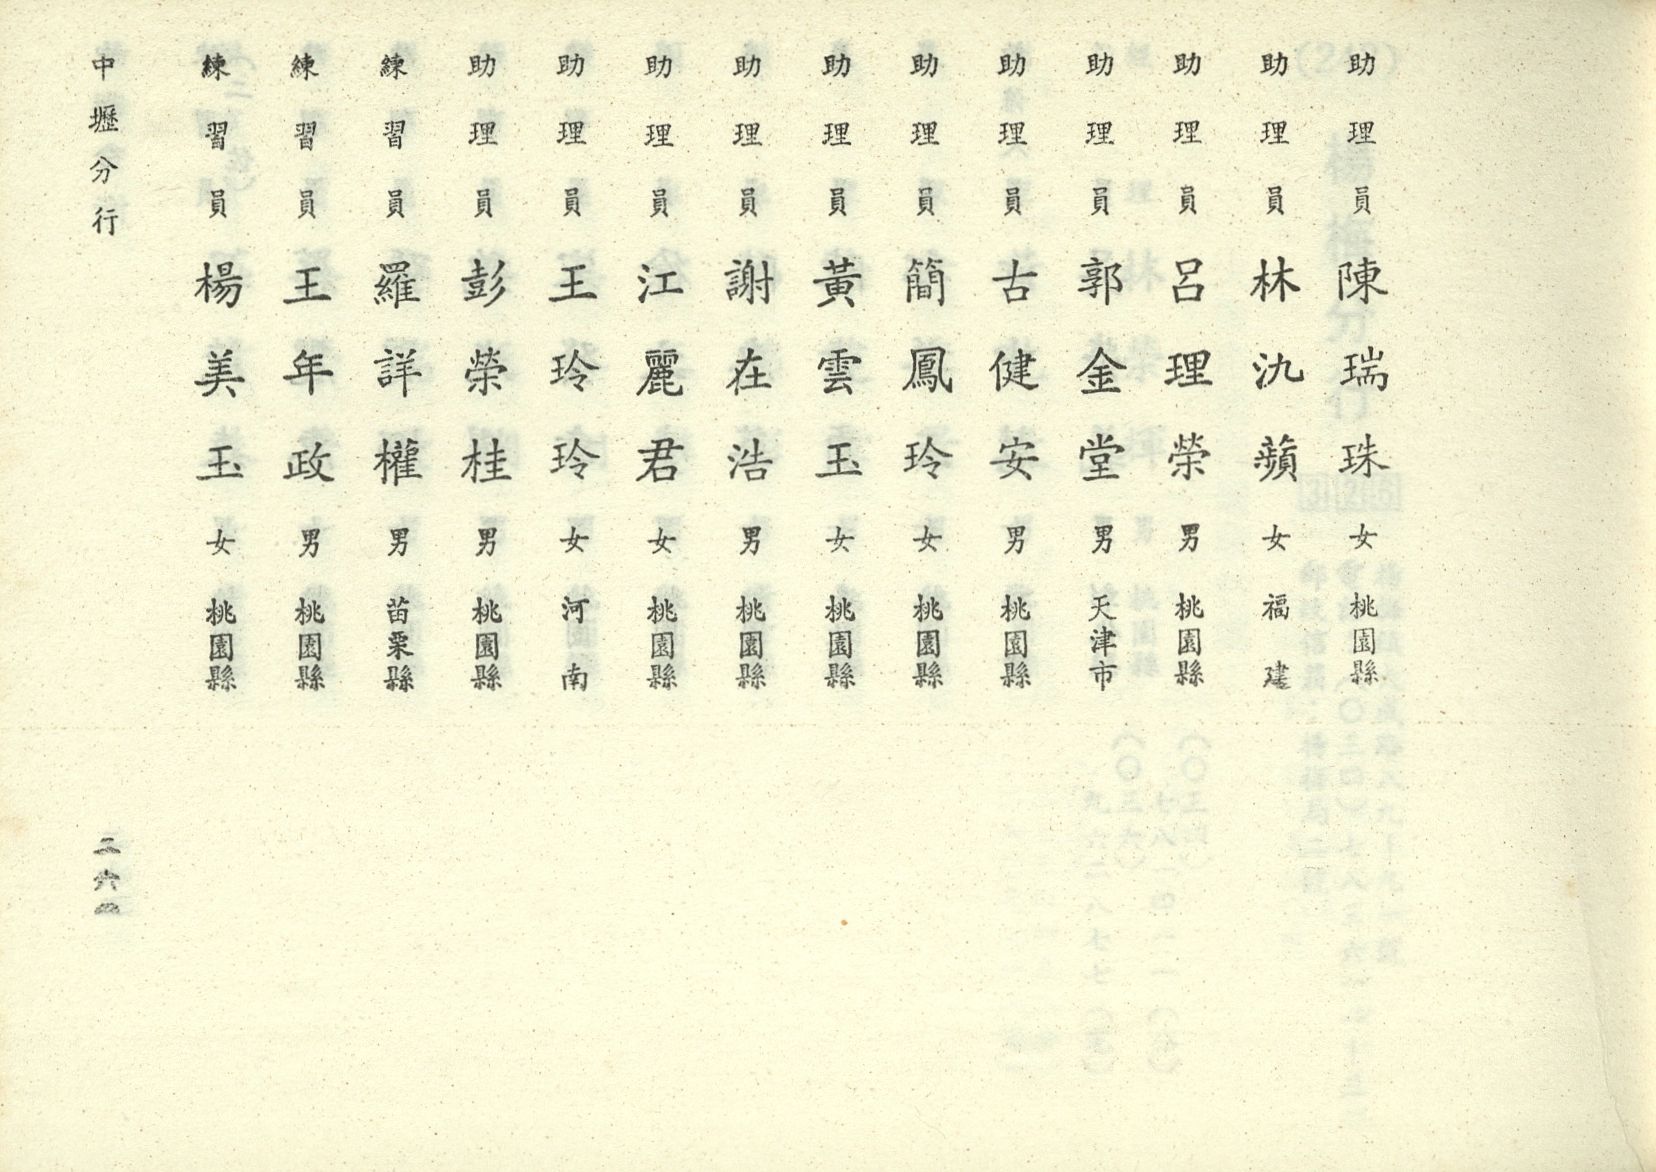 助理員 陳瑞珠 女 桃園縣
助理員 林氿蘋 女 福建
助理員 呂理榮 男 桃園縣
助理員 郭金堂 男 天津市
助理員 古健安 男 桃園縣
助理員 簡鳳玲 女 桃園縣
助理員 黃雲玉 女 桃園縣
助理員 謝在浩 男 桃園縣
助理員 江麗君 女 桃園縣
助理員 王玲玲 女 河南
助理員 彭榮桂 男 桃園縣
練習員 羅詳權 男 苗栗縣
練習員 王年政 男 桃園縣
練習員 楊美玉 女 桃園縣
中壢分行
二六四